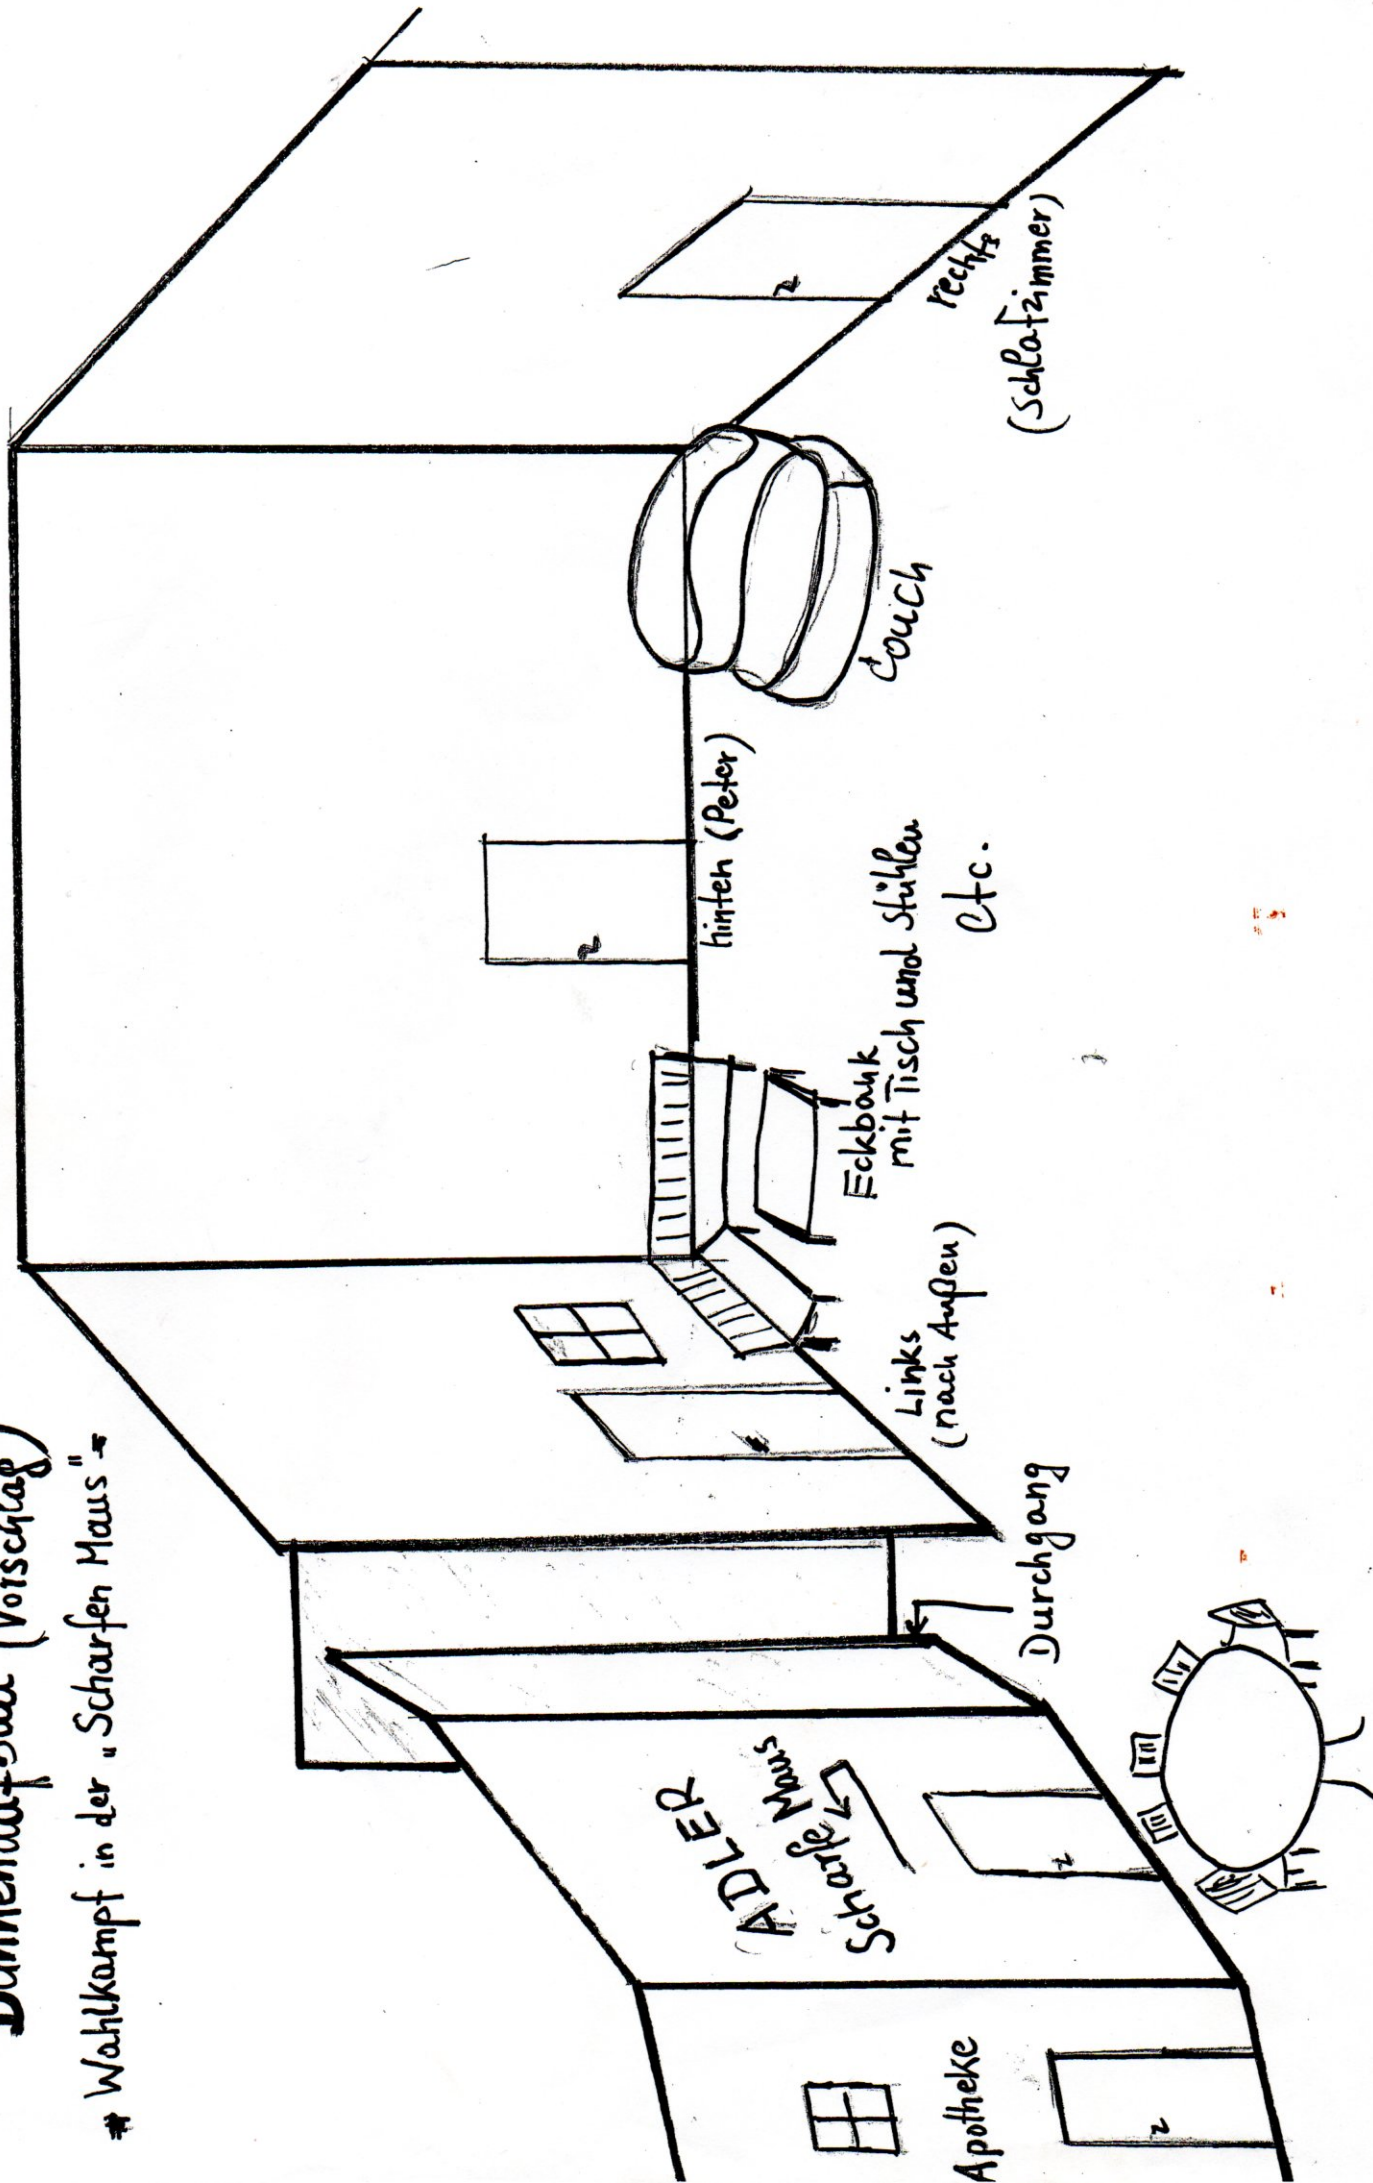 Bühnenaufbau (Vorschlag)
* Wahlkampf in der „Scharfen Maus" *
Apotheke
ADLER
Scharfe Maus
Durchgang
Links
(nach Außen)
Eckbank
mit Tisch und Stühlen
etc.
hinten (Peter)
Couch
rechts
(Schlafzimmer)